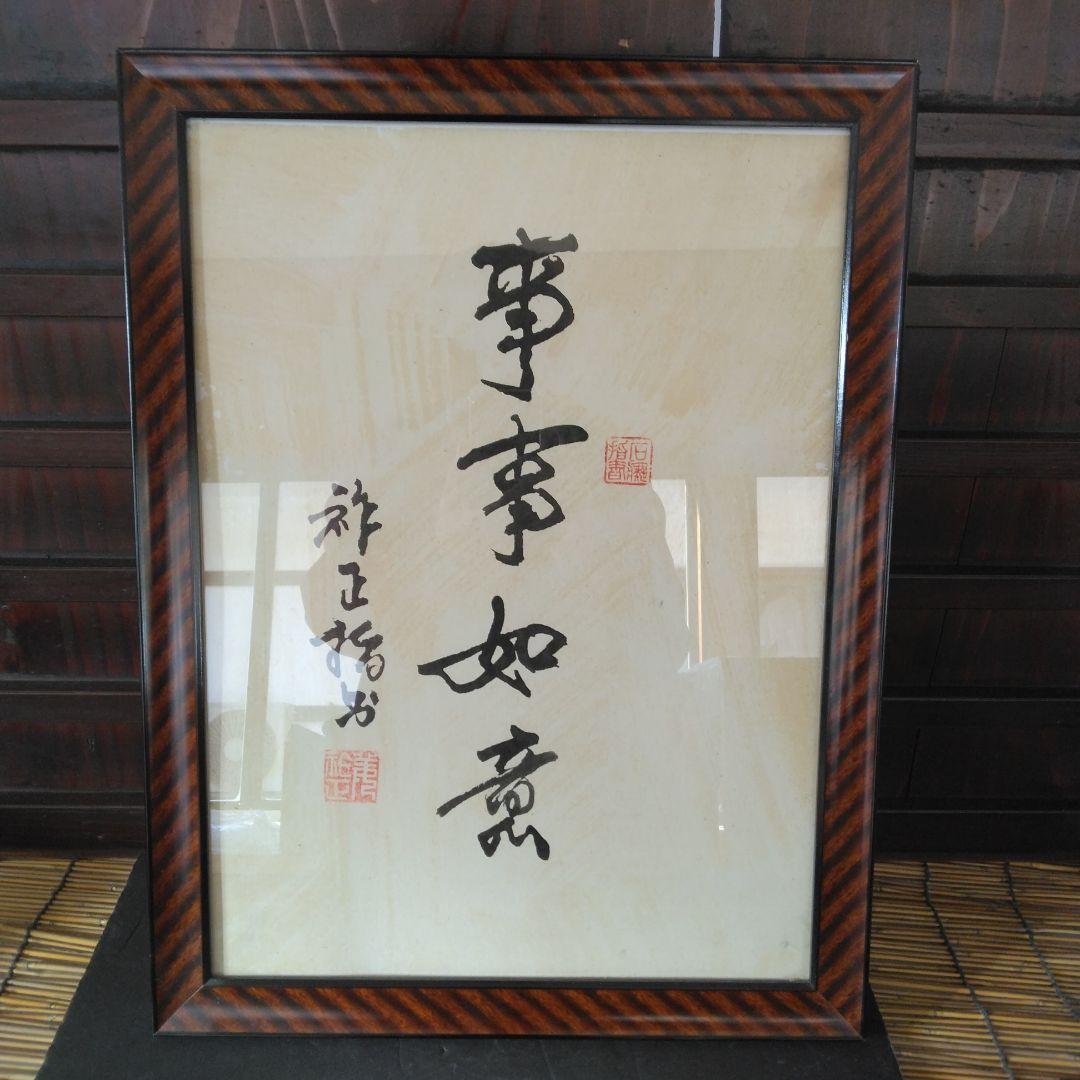 事事如意
祚正指书